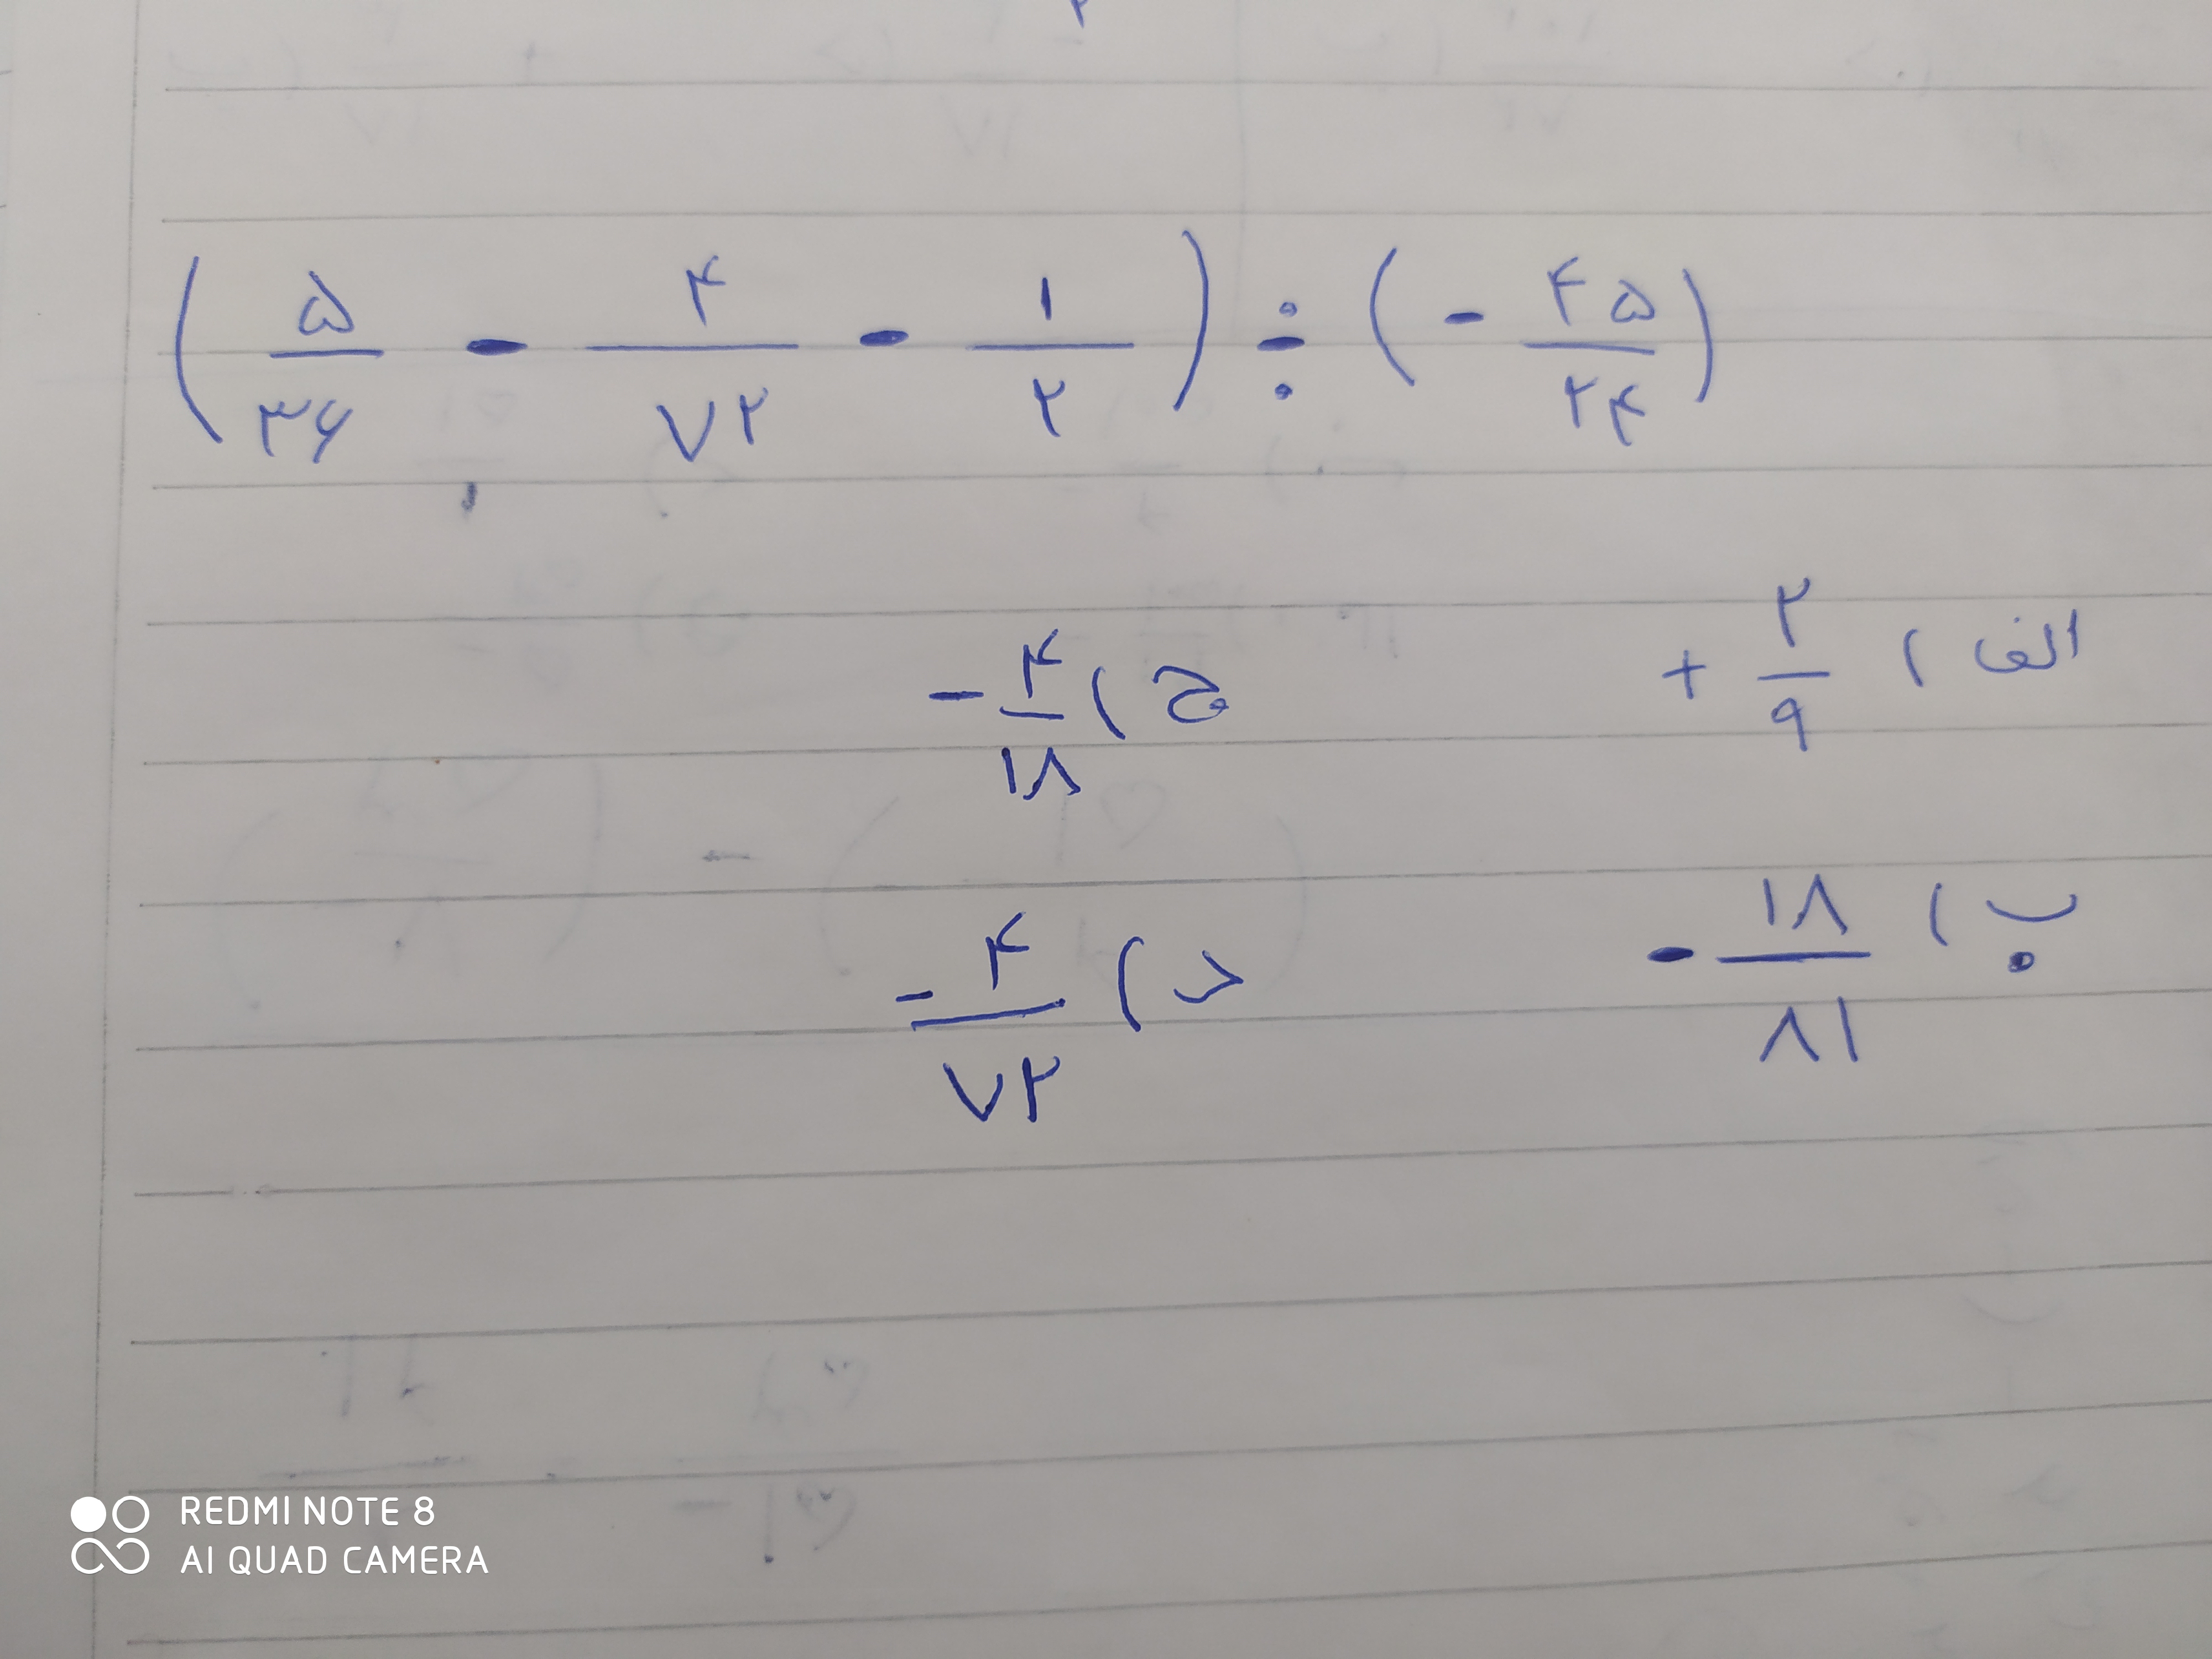 (۵/۳۶ - ۴/۷۲ - ۱/۲) ÷ (- ۴۵/۲۴)
الف) + ۲/۹
ج) - ۴/۱۸
ب) - ۱۸/۸۱
د) - ۴/۷۲
REDMI NOTE 8
AI QUAD CAMERA